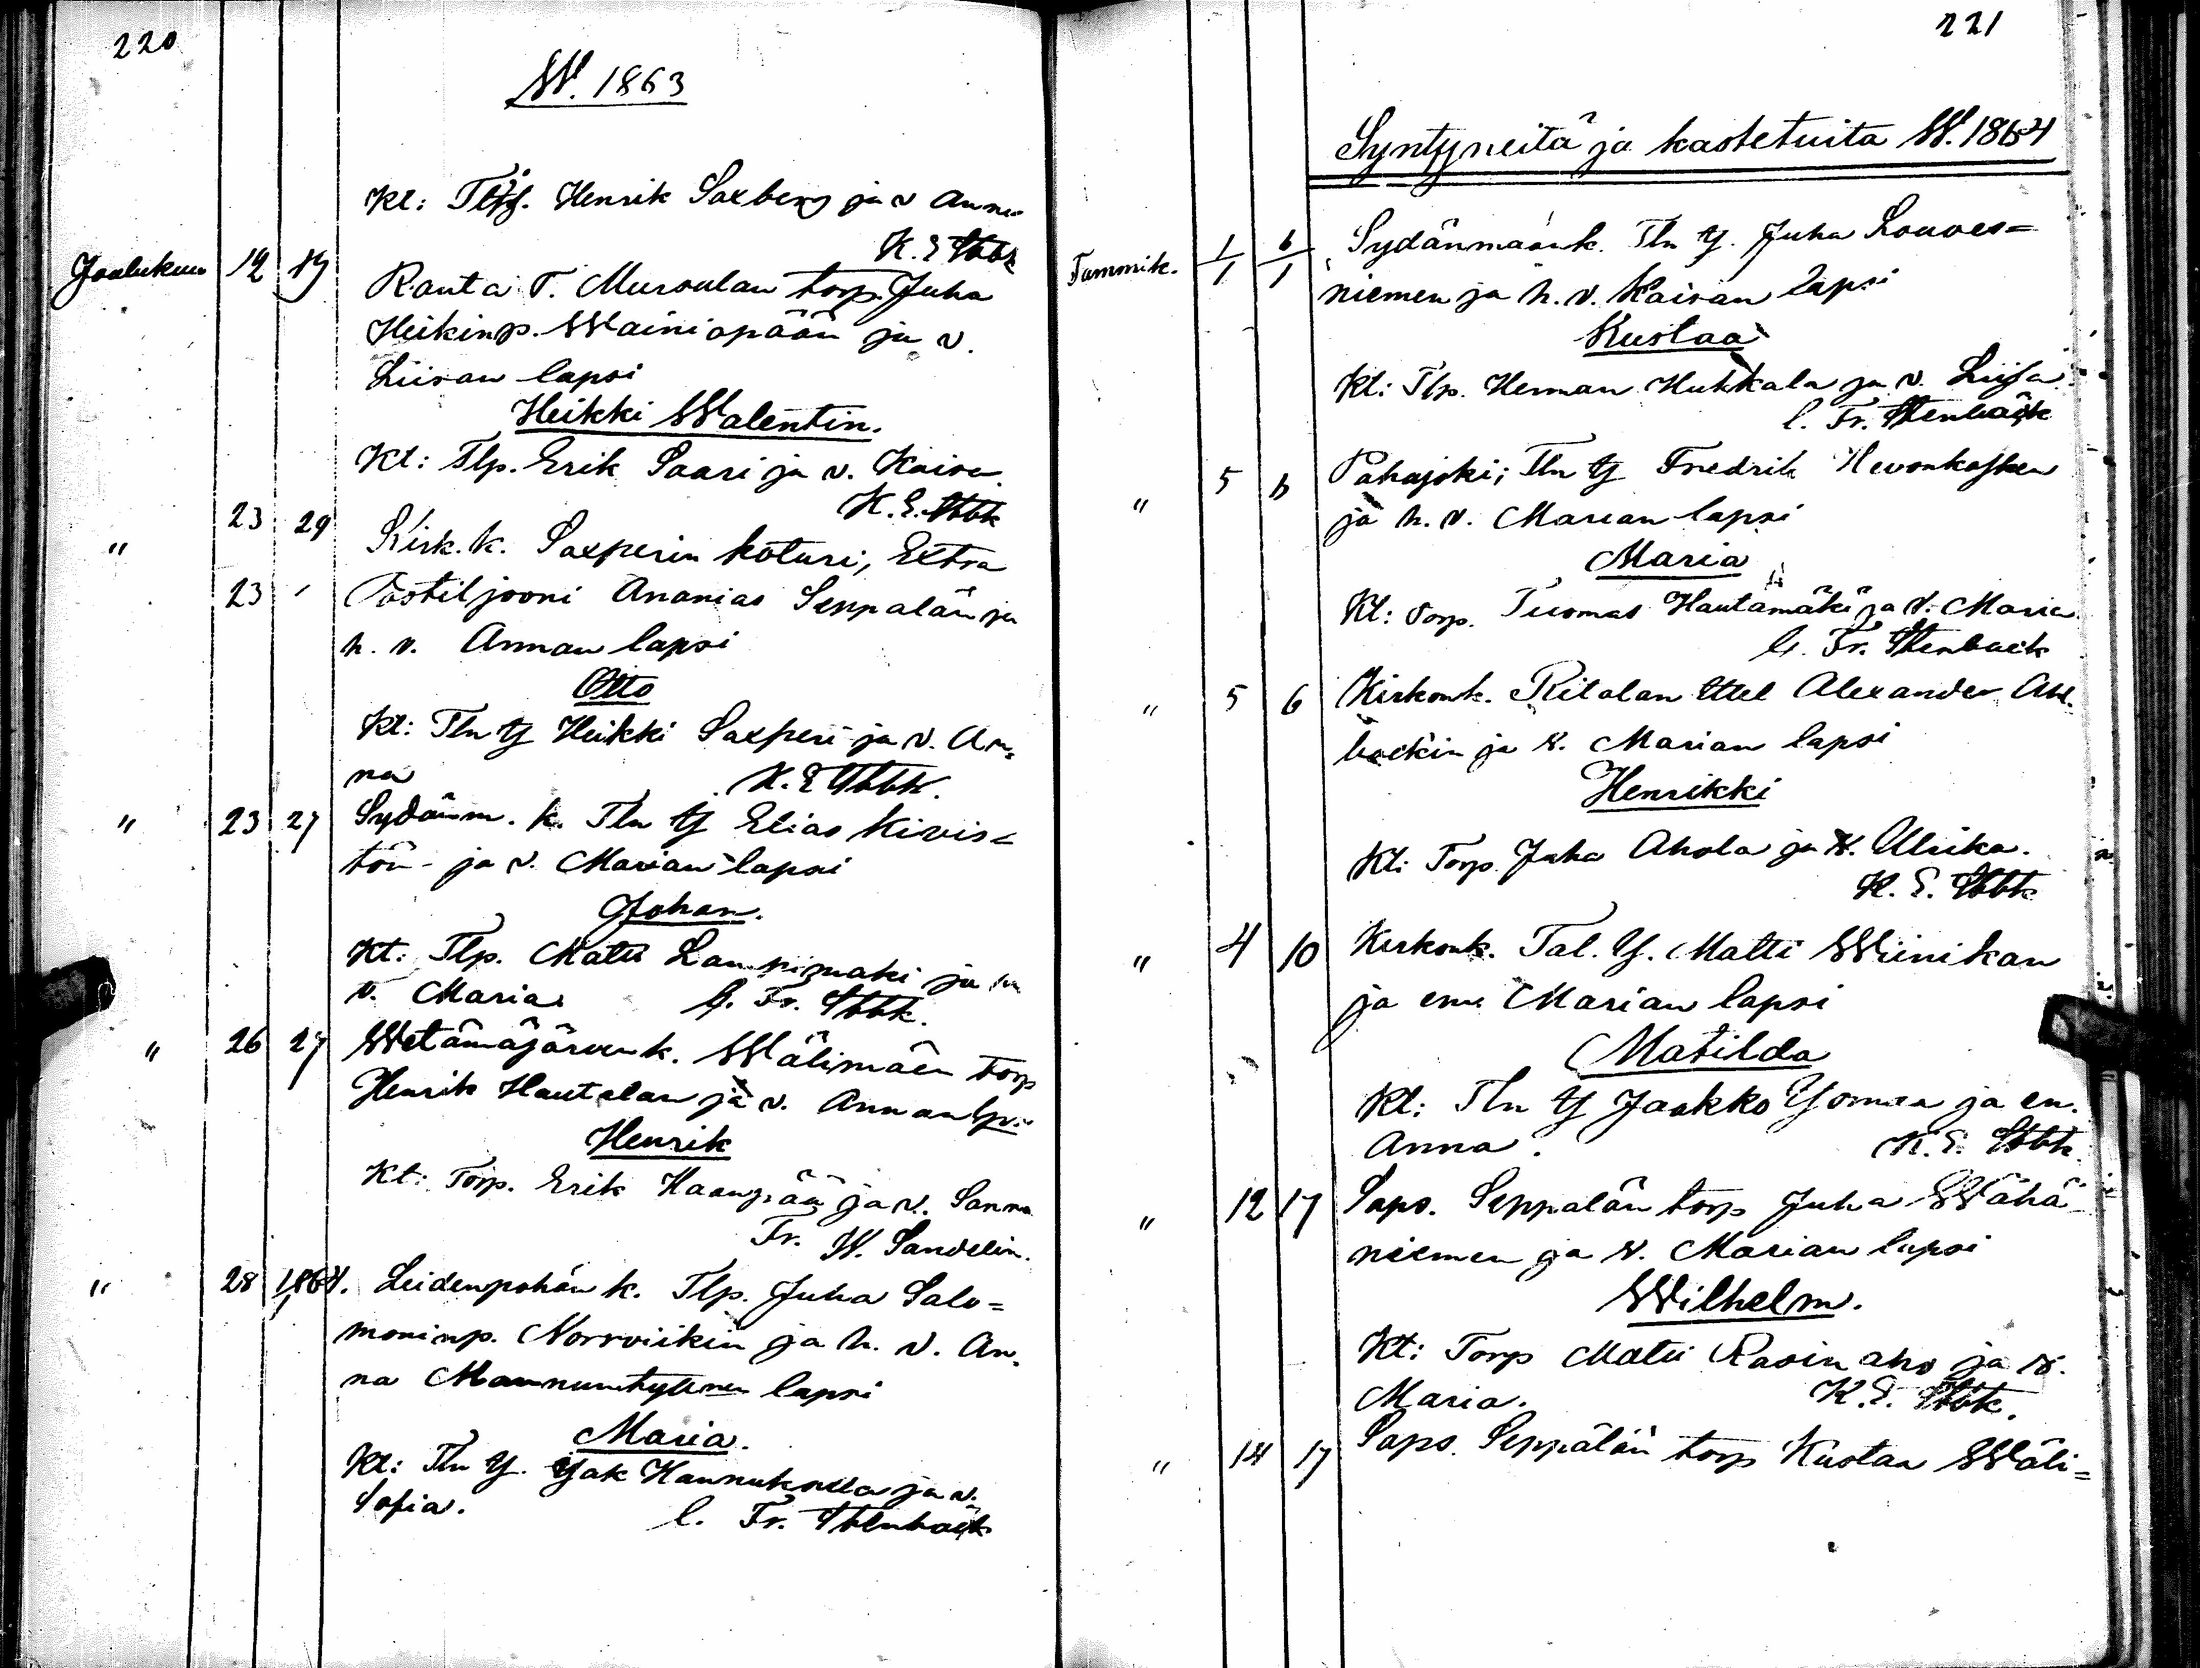 220
W. 1863
Kt: Tlps. Henrik Saxberg ja v Anna
K. E Stbk
Joulukuu 12 17 Ranta T. Mursulan torp. Juha
Heikinp. Wainiopään ja v.
Liisan lapsi
Heikki Walentin.
Kt: Tlp. Erik Saari ja v. Kaisa
K. E. Stbk
" 23 29 Kirk. k. Saxperin koturi, Extra
23 Postiljooni Ananias Seppalän ja
h. v. Annan lapsi
Otto
Kt: Tln y Heikki Saxperi ja v. An=
na K. E Stbk.
" 23 27 Sydänm. k. Tln y Elias Kivis=
tön ja v. Marian lapsi
Johan.
Kt: Tlp. Matti Lampimaki ja
v. Maria G. Fr. Stbk.
" 26 27 Wetämäjärven k. Wälimäen torp
Henrik Hautalan ja v. Annan lpsi
Henrik
Kt: Torp. Erik Haanpää ja v. Sanna
Fr. W. Sandelin.
" 28 1864. Leidenpohän k. Tlp. Juha Salo=
moninp. Norrviikin ja h. v. An=
na lapsi
Maria.
Kt: Tln y. Jak ja v.
Sofia. C. Fr. Stenbäck
221
Syntyneitä ja kastetuita W. 1864
Tammik. 1/1 6/1 Sydänmaank. Tln y. Juha Louves=
niemen ja h. v. Kaisan lapsi
Kustaa
Kt: Tlp. Herman Huhkala ja v. Liisa
C. Fr. Stenbäck
" 5 6 Pahajoki; Tln y Fredrik Hevonkosken
ja h. v. Marian lapsi
Maria
Kt: Torp. Tuomas Hautamäki ja v. Maria
C. Fr. Stenback
" 5 6 Kirkonk. Ritalan ttel Alexander Ahl=
backin ja v. Marian lapsi
Henrikki
Kt: Torp. Juha Ahola ja v. Ulrika.
K. E. Stbk
" 4 10 Kirkonk. Tal. y. Matti Wiinikan
ja em. Marian lapsi
Matilda
Kt: Tln y Jaakko ja em.
Anna. K. E. Stbk.
" 12 17 Saps. Seppälän torp Juha Wähä
niemen ja v. Marian lapsi
Wilhelm.
Kt: Torp Matti Rasinaho ja v.
Maria. K. E. Stbk.
" 14 17 Saps. Seppälän torp Kustaa Wäli=